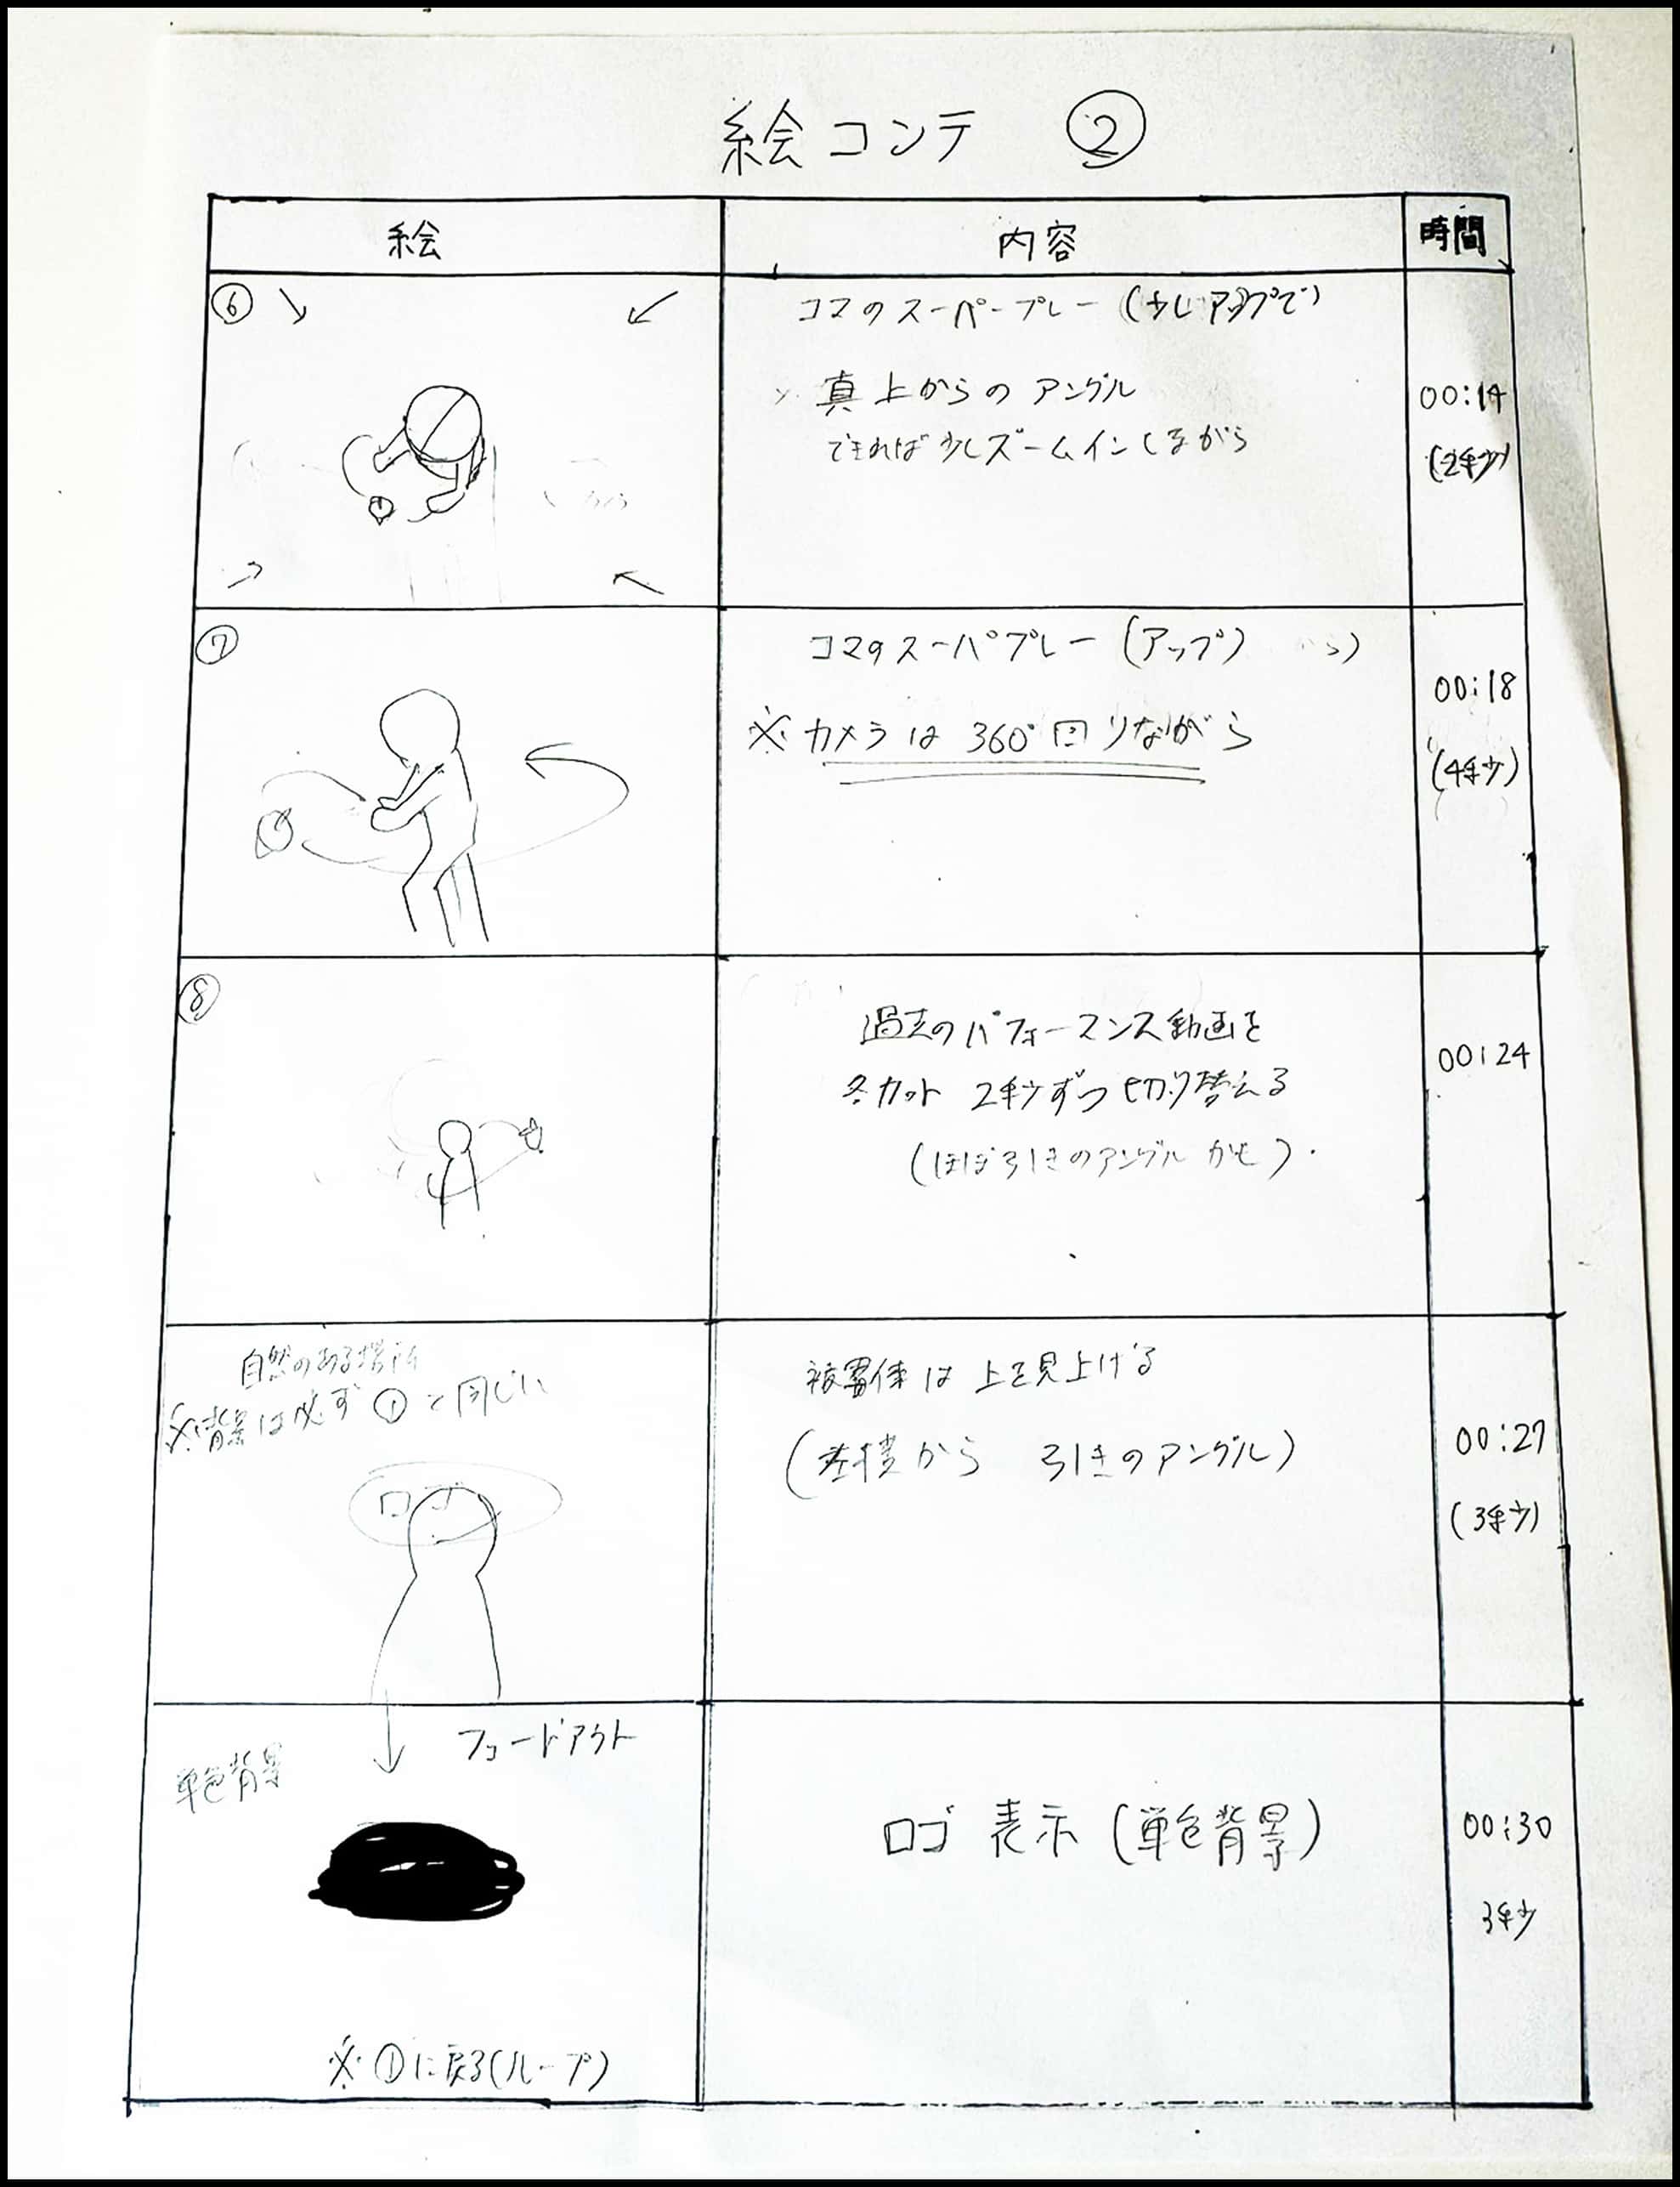 絵コンテ ②
絵 内容 時間
⑥
コマのスーパープレー (少しアップで)
真上からの アングル
できれば少しズームインしながら
00:14
(2秒)
⑦
コマのスーパープレー (アップ)
※ カメラは 360°回りながら
00:18
(4秒)
⑧
過去のパフォーマンス動画を
各カット 2秒ずつ切り替える
(ほぼ引きのアングルかも)
00:24
自然のある場所
※背景は必ず ① と同じに
ロゴ
被写体は 上を見上げる
から 引きのアングル)
00:27
(3秒)
フェードアウト
単色背景
ロゴ 表示 (単色背景)
00:30
3秒
※ ①に戻る(ループ)